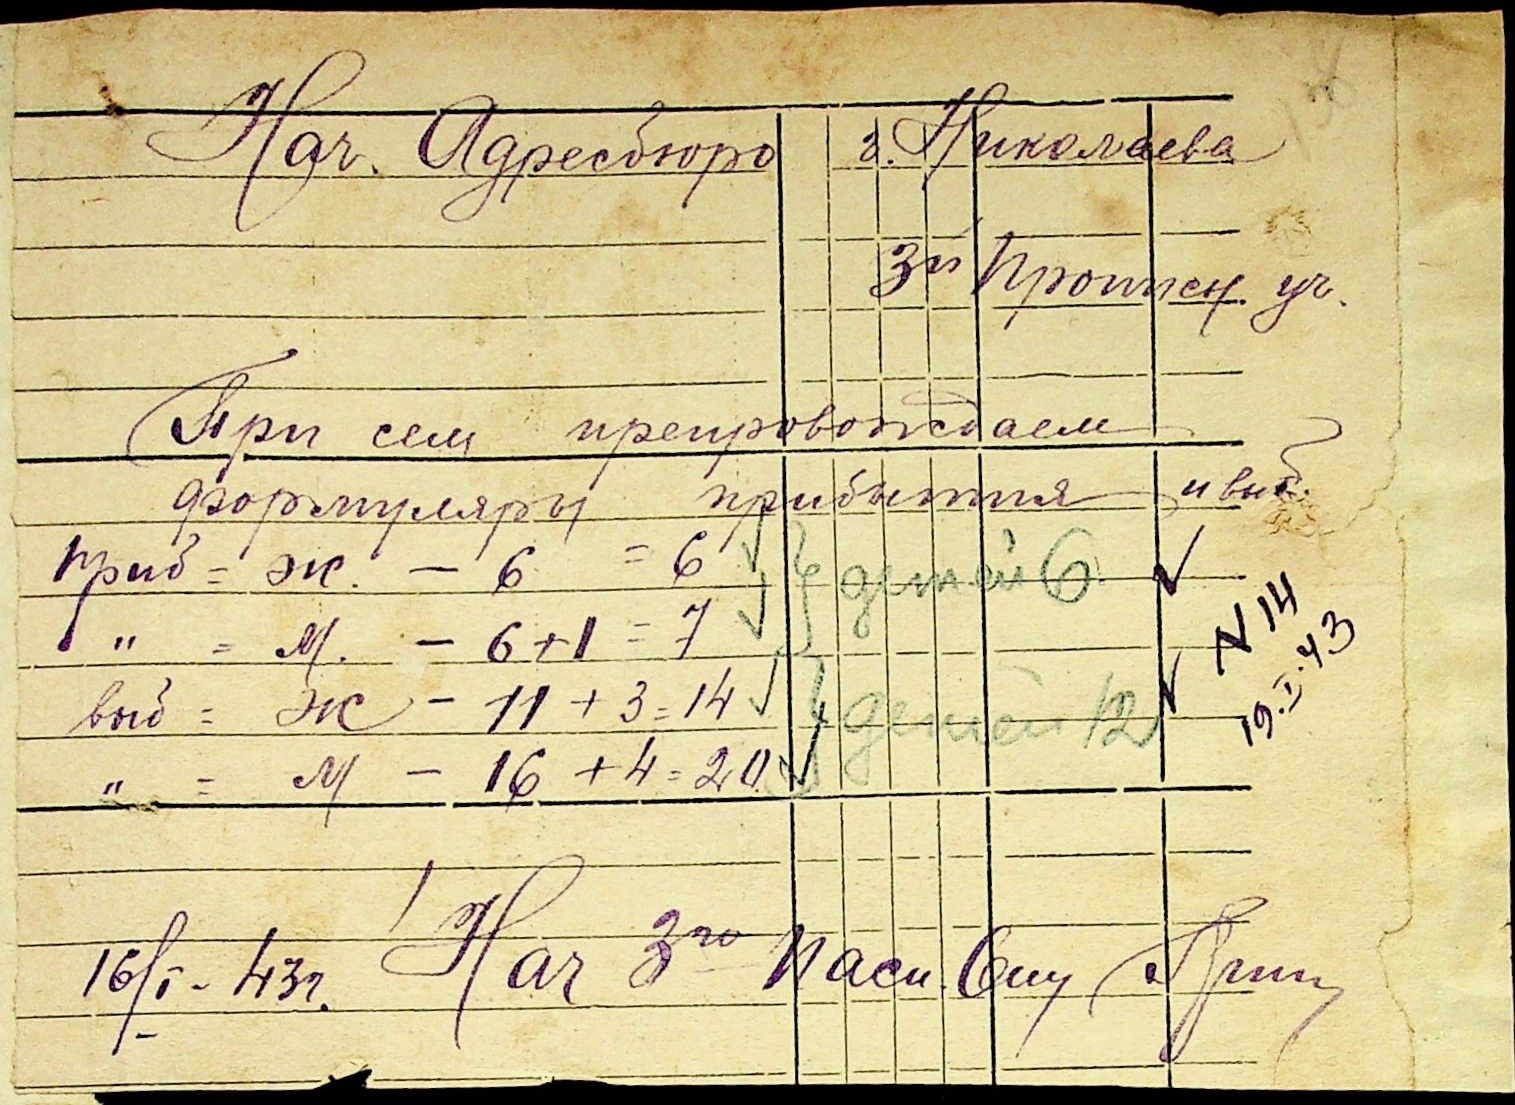 Нач. Адресбюро г. Николаева
3й Прописн. уч.
При сем препровождаем
формуляры прибытия и выб.
приб = Ж. – 6 = 6 детей 6
" = М. – 6+1 = 7
N 14
19.I.43
выб = Ж – 11 + 3 = 14 детей 12
" = М – 16 + 4 = 20
16/I - 43г. Нач 3го Пасп.